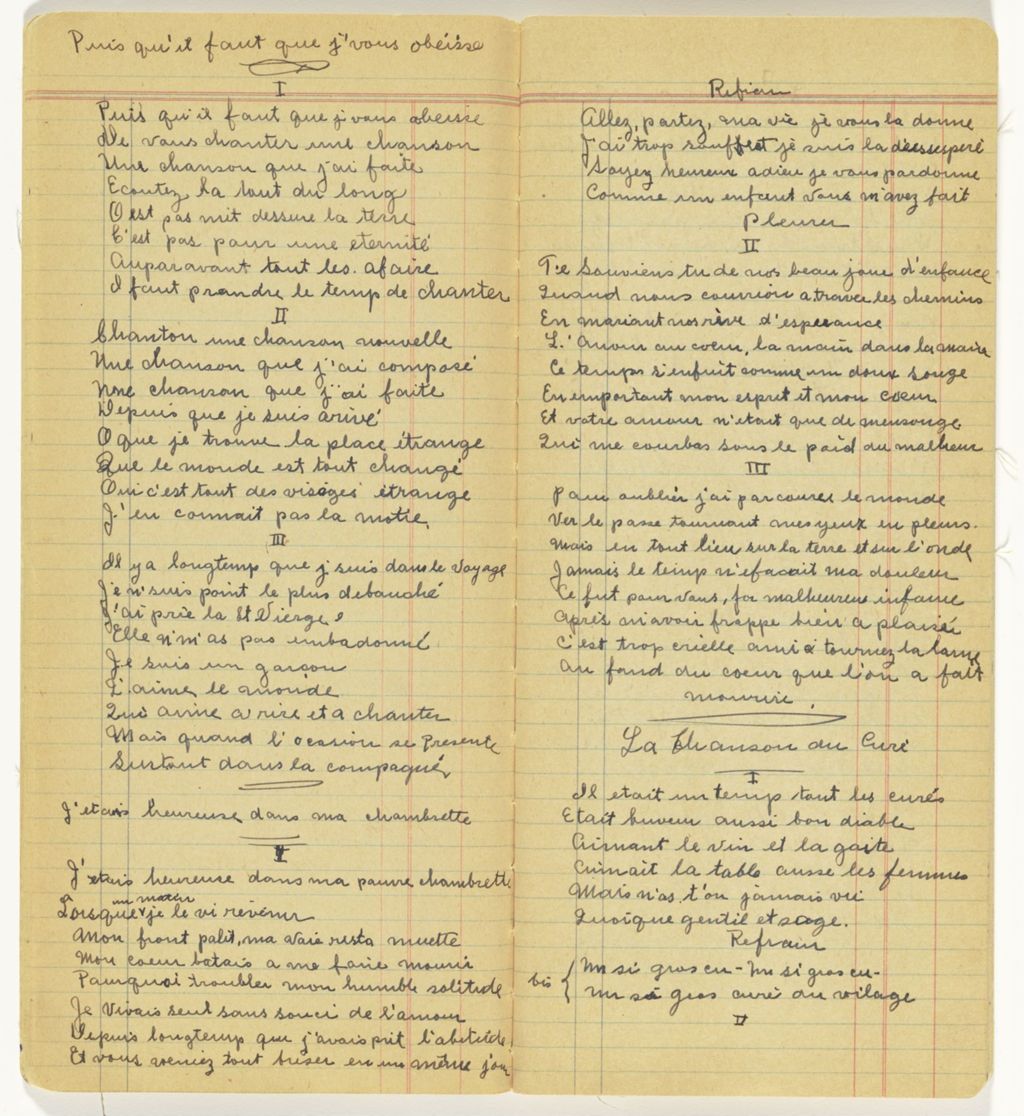 Puis qu'il faut que j'vous obéisse
I
Puis qu'il faut que j'vous obeisse
De vous chanter une chanson
Une chanson que j'ai faite
Ecoutez la tout du long
O est pas mit dessure la terre
C'est pas pour une eternité
Auparavant tout les. afaire
I faut prandre le temp de chanter
II
Chanton une chanson nouvelle
Une chanson que j'ai composé
Une chanson que j'ai faite
Depuis que je suis arivé
O que je trouve la place étrange
Que le monde est tout changé
Oui c'est tout des visages étrange
J'en connait pas la motié
III
Il y a longtemp que j suis dans le voyage
Je n'suis point le plus debauché
J'ai prié la St Vierge
Elle n'm'as pas enbadonné
Je suis un garçon
J'aime le monde
Qui aime a rire et a chanter
Mais quand l'ocasion se presente
Surtout dans la compagné
J'etais heureuse dans ma chambrette
I
J'etais heureuse dans ma pauvre chambrette
Lorsque un matin je le vi revenir
Mon front palit, ma voie resta muette
Mon coeur batais a me faire mourir
Pourquoi troubler mon humble solitude
Je vivais seul sans souci de l'amour
Depuis longtemp que j'avais prit l'abitude
Et vous veniez tout briser en un même jour
Refrain
Allez, partez, ma vie je vous la donne
J'ai trop souffert je suis la désesperé
Soyez heureux adieu je vous pardonne
Comme un enfant vous m'avez fait
Pleurer
II
Te souviens tu de nos beau jour d'enfance
Quand nous courrion a traver les chemins
En mariant nos rêve d'esperance
L'Amour au coeur, la main dans la main
Ce temps s'enfuit comme un doux songe
En emportant mon esprit et mon coeur
Et votre amour n'etait que de mensonge
Qui me courbas sous le poid du malheur
III
Pour oublier j'ai parcouru le monde
Ver le passe tournant mes yeux en pleurs.
Mais en tout lieu sur la terre et sur l'onde
Jamais le temp n'efacait ma douleur
Ce fut pour vous, for malheureux infame
Après m'avoir frappe bien a plaisir
C'est trop crielle ami a tournez la lame
Au fond du coeur que l'on a fait
mourire.
La Chanson du Curé
I
Il etait un temp tout les curés
Etait buveur aussi bon diable
Aimant le vin et la gaite
Aimait la table aussi les femmes
Mais n'as t'on jamais vu
Quoique gentil et sage.
Refrain
bis { Un si gros cu- Un si gros cu-
Un si gros curé du vilage
II